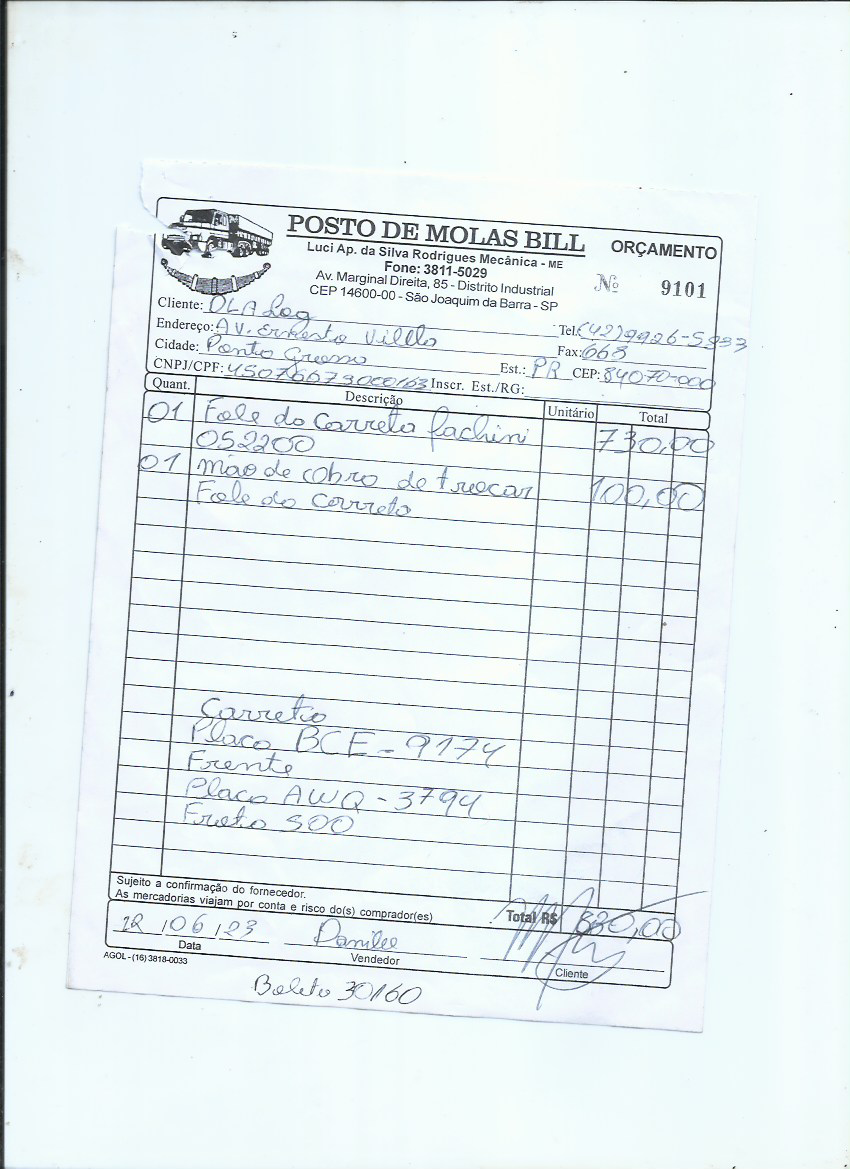 POSTO DE MOLAS BILL
ORÇAMENTO
Luci Ap. da Silva Rodrigues Mecânica - ME
Fone: 3811-5029
Av. Marginal Direita, 85 - Distrito Industrial
CEP 14600-00 - São Joaquim da Barra - SP
Nº 9101
Cliente: DLA Log
Endereço: AV. Ernesto Villlo Tel.: (42)9926-5933
Cidade: Ponta Grossa Fax: 665
CNPJ/CPF: 45076673000163 Inscr. Est./RG: Est.: PR CEP: 84070-000
Quant. Descrição Unitário Total
01 Fole da Carreta fachini 730,00
052200
01 mão de obra de trocar 100,00
Fole da Carreta
Carreta
Placa BCE-9174
Frente
Placa AWQ-3794
Frota 500
Sujeito a confirmação do fornecedor.
As mercadorias viajam por conta e risco do(s) comprador(es)
Total R$ 830,00
12/06/23 Danilo
Data Vendedor Cliente
AGOL - (16) 3818-0033
Boleto 30/60